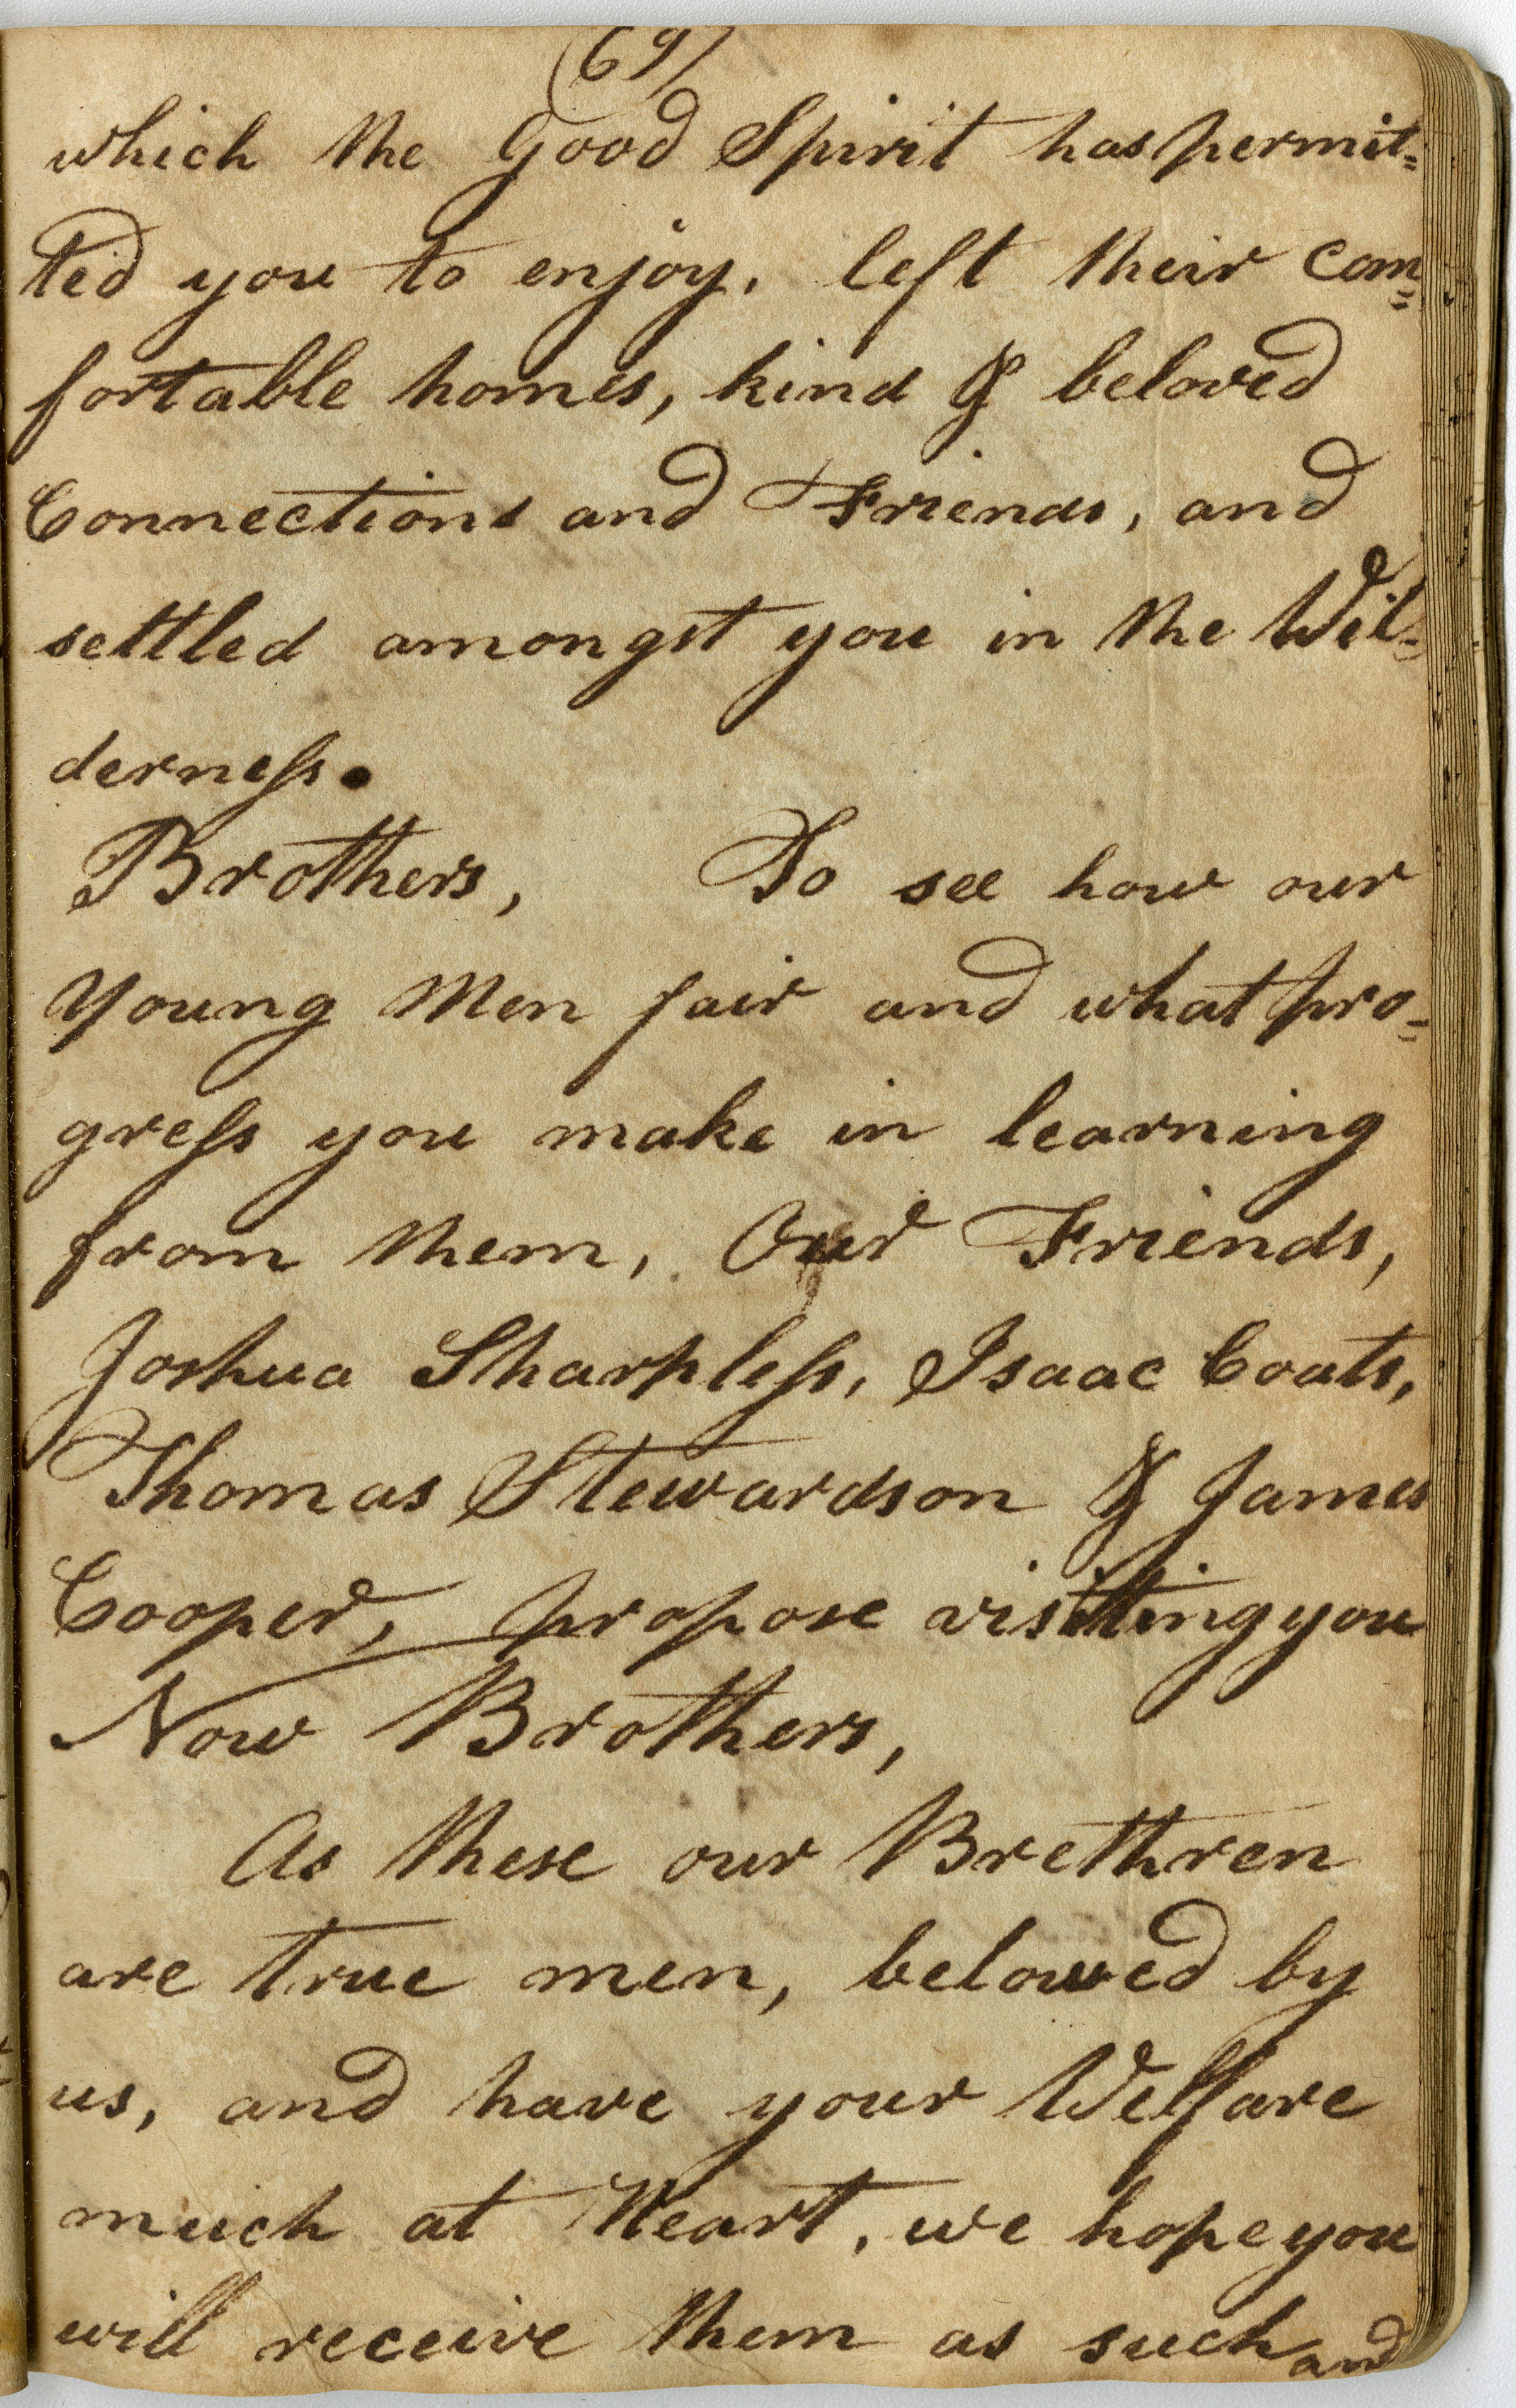 (69)
which the Good Spirit has permit=
ted you to enjoy, left their com=
fortable homes, kind & beloved
Connections and Friends, and
settled amongst you in the Wil=
derneſs.
Brothers, To see how our
Young Men fair and what pro=
greſs you make in learning
from them, Our Friends,
Joshua Sharpleſs, Isaac Coats,
Thomas Stewardson & James
Cooper, propose visitting you
Now Brothers,
As these our Brethren
are true men, beloved by
us, and have your Welfare
much at Heart, we hope you
will receive them as such and